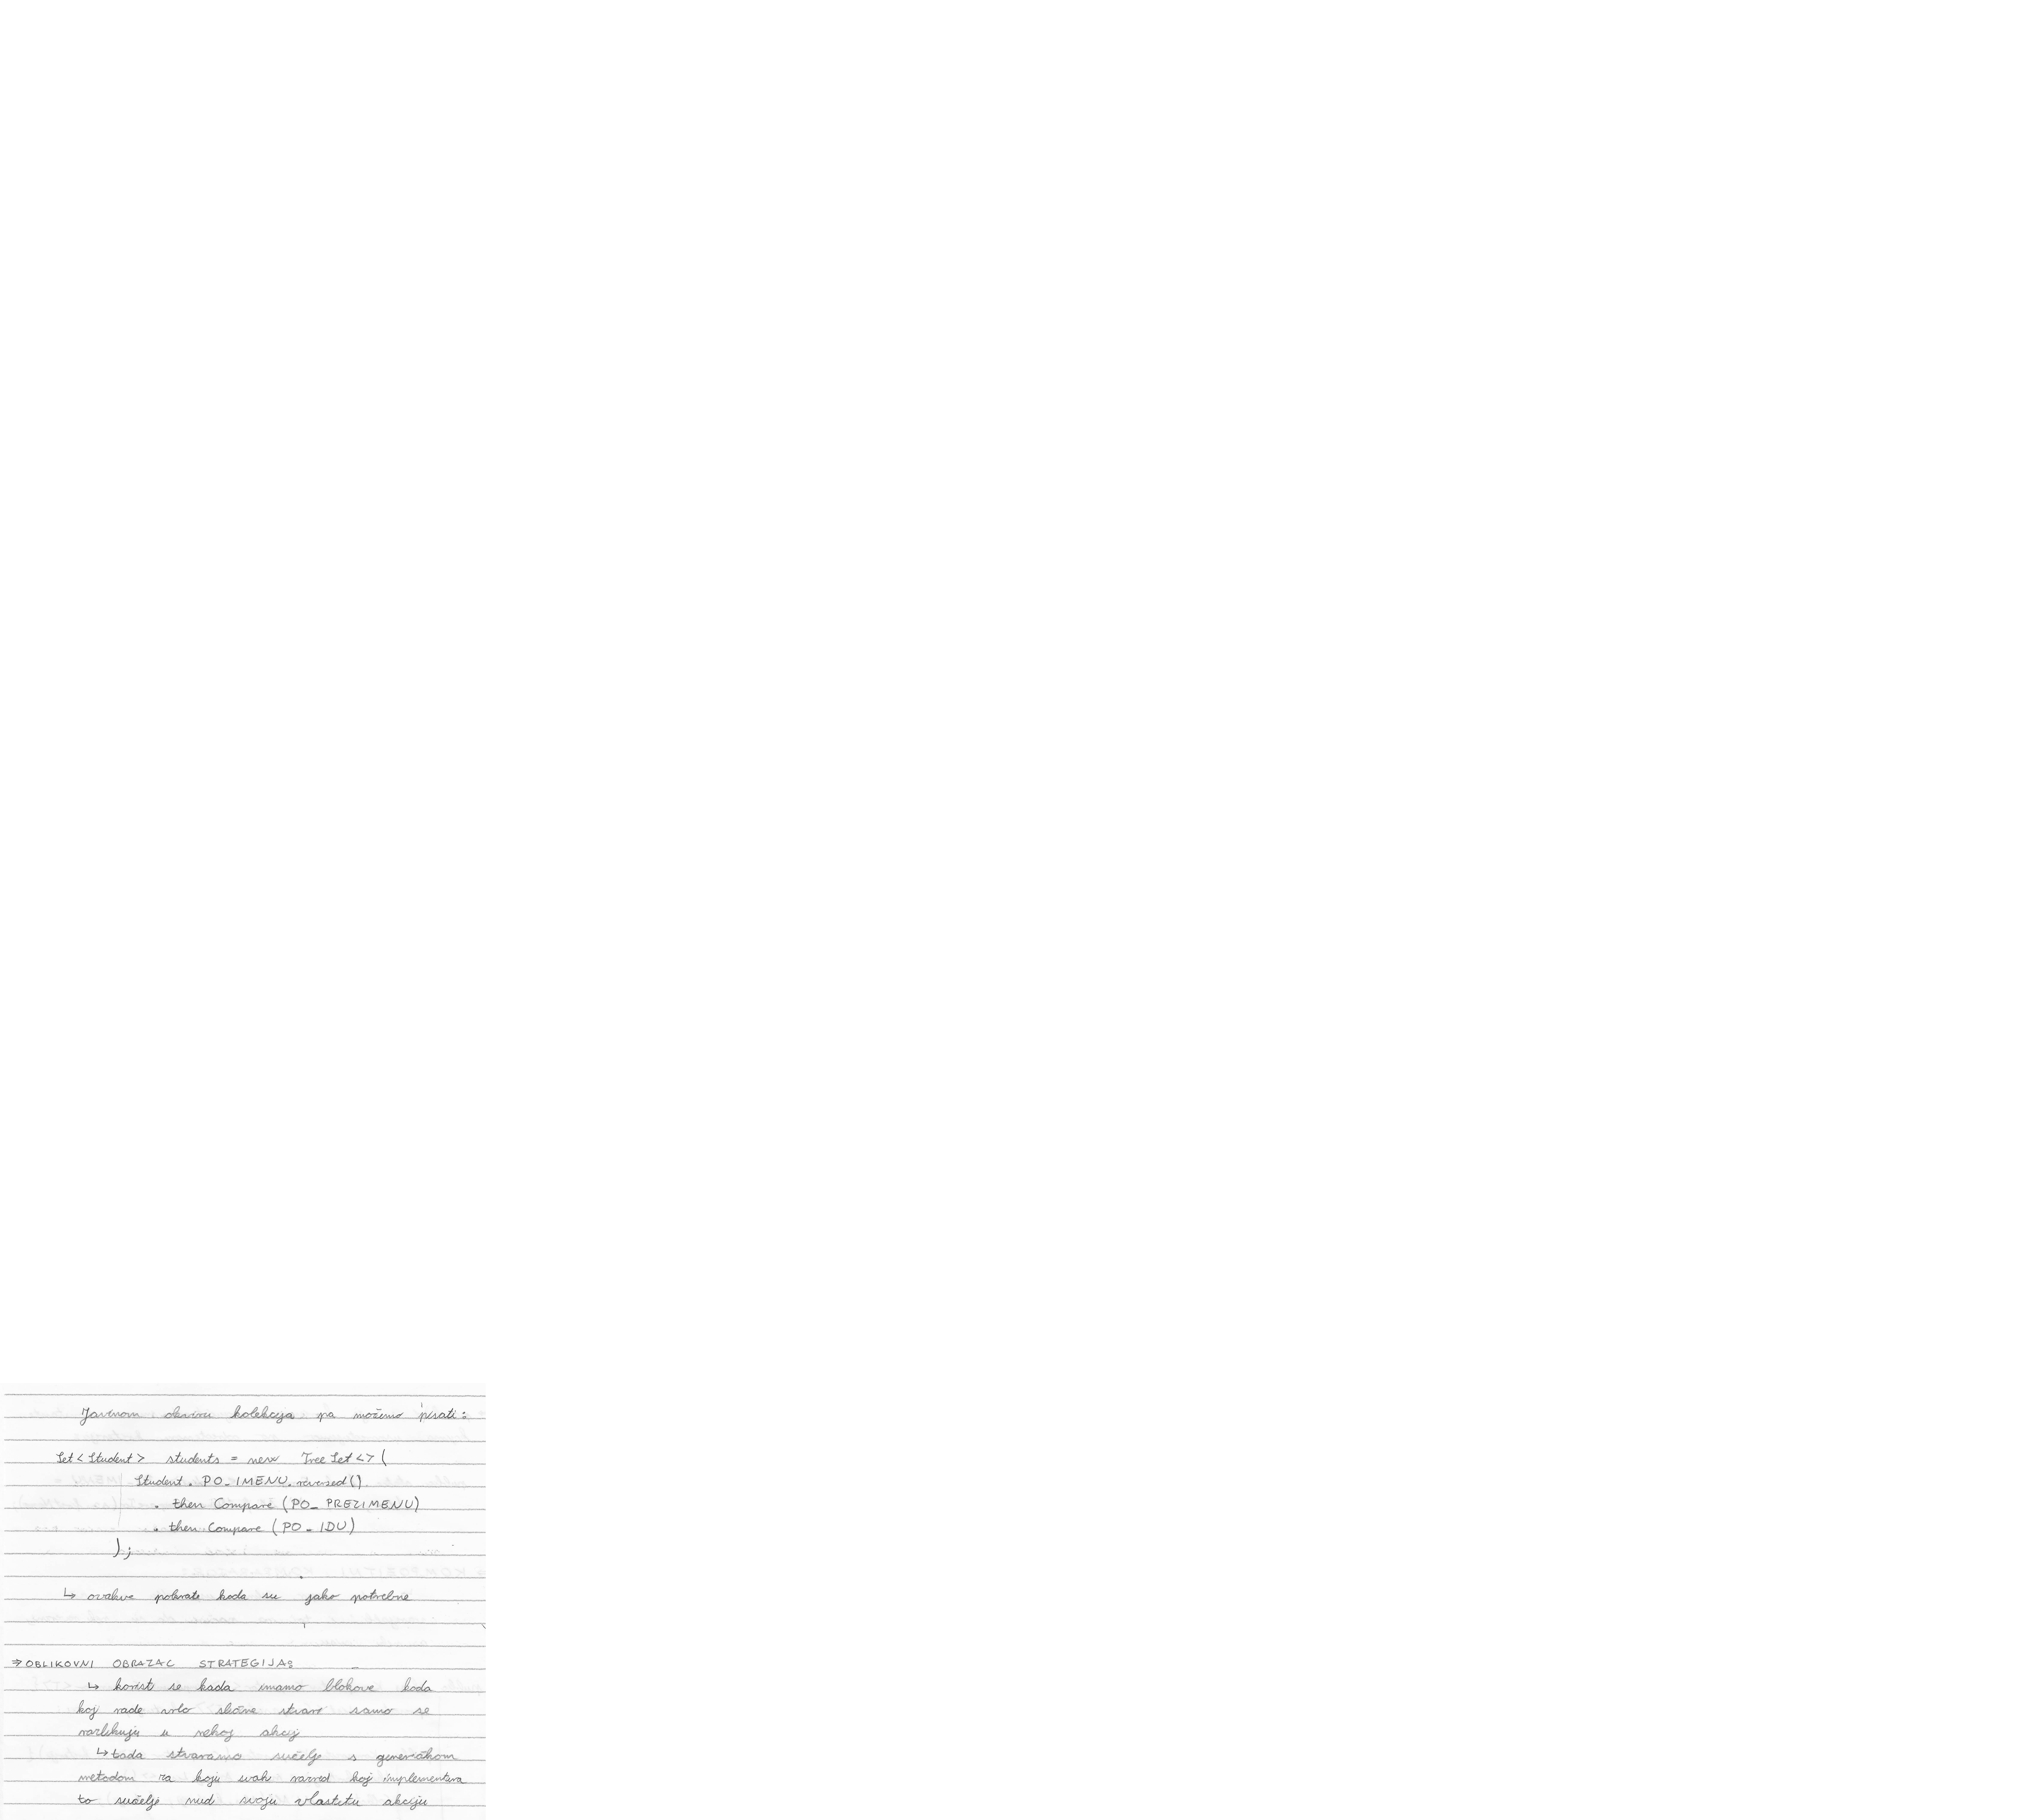 Javinom okviru kolekcija pa možemo pisati:
Set<Student> students = new TreeSet<>(
Student.PO_IMENU.reversed()
.then Compare (PO_PREZIMENU)
.then Compare (PO_IDU)
);
↳ ovakve pokrate koda su jako potrebne
⇒ OBLIKOVNI OBRAZAC STRATEGIJA:
↳ koristi se kada imamo blokove koda
koji rade vrlo slične stvari samo se
razlikuju u nekoj akciji
↳ tada stvaramo sučelje s generičkom
metodom za koju svaki razred koji implementira
to sučelje nudi svoju vlastitu akciju